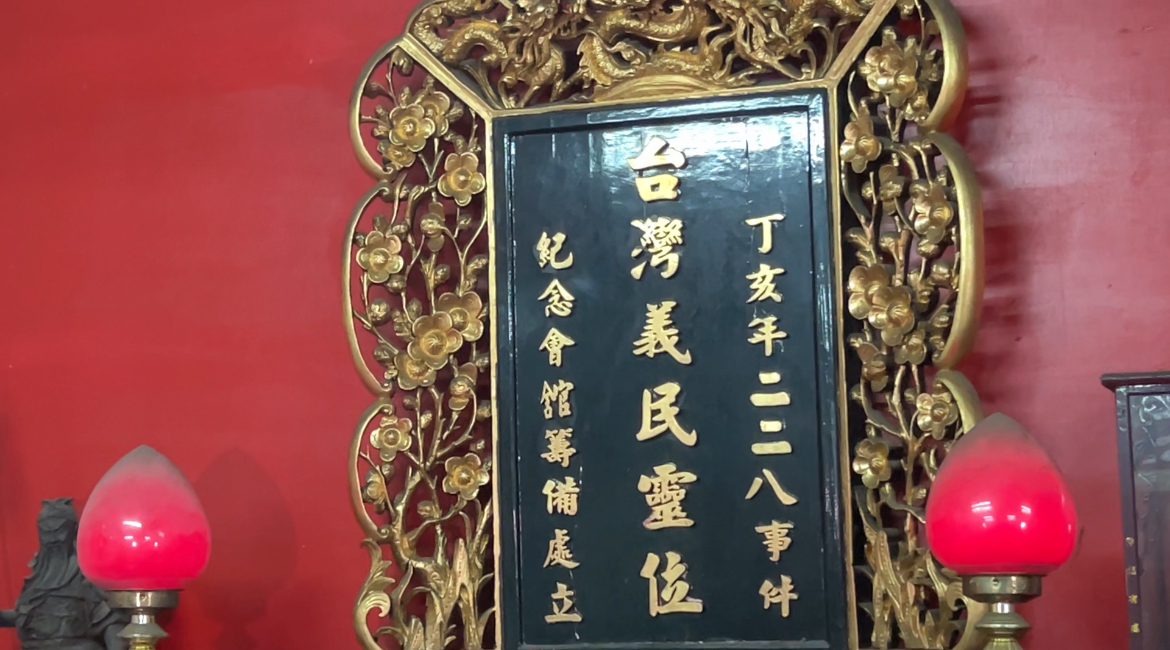 丁亥年二二八事件
台灣義民靈位
紀念會館籌備處立